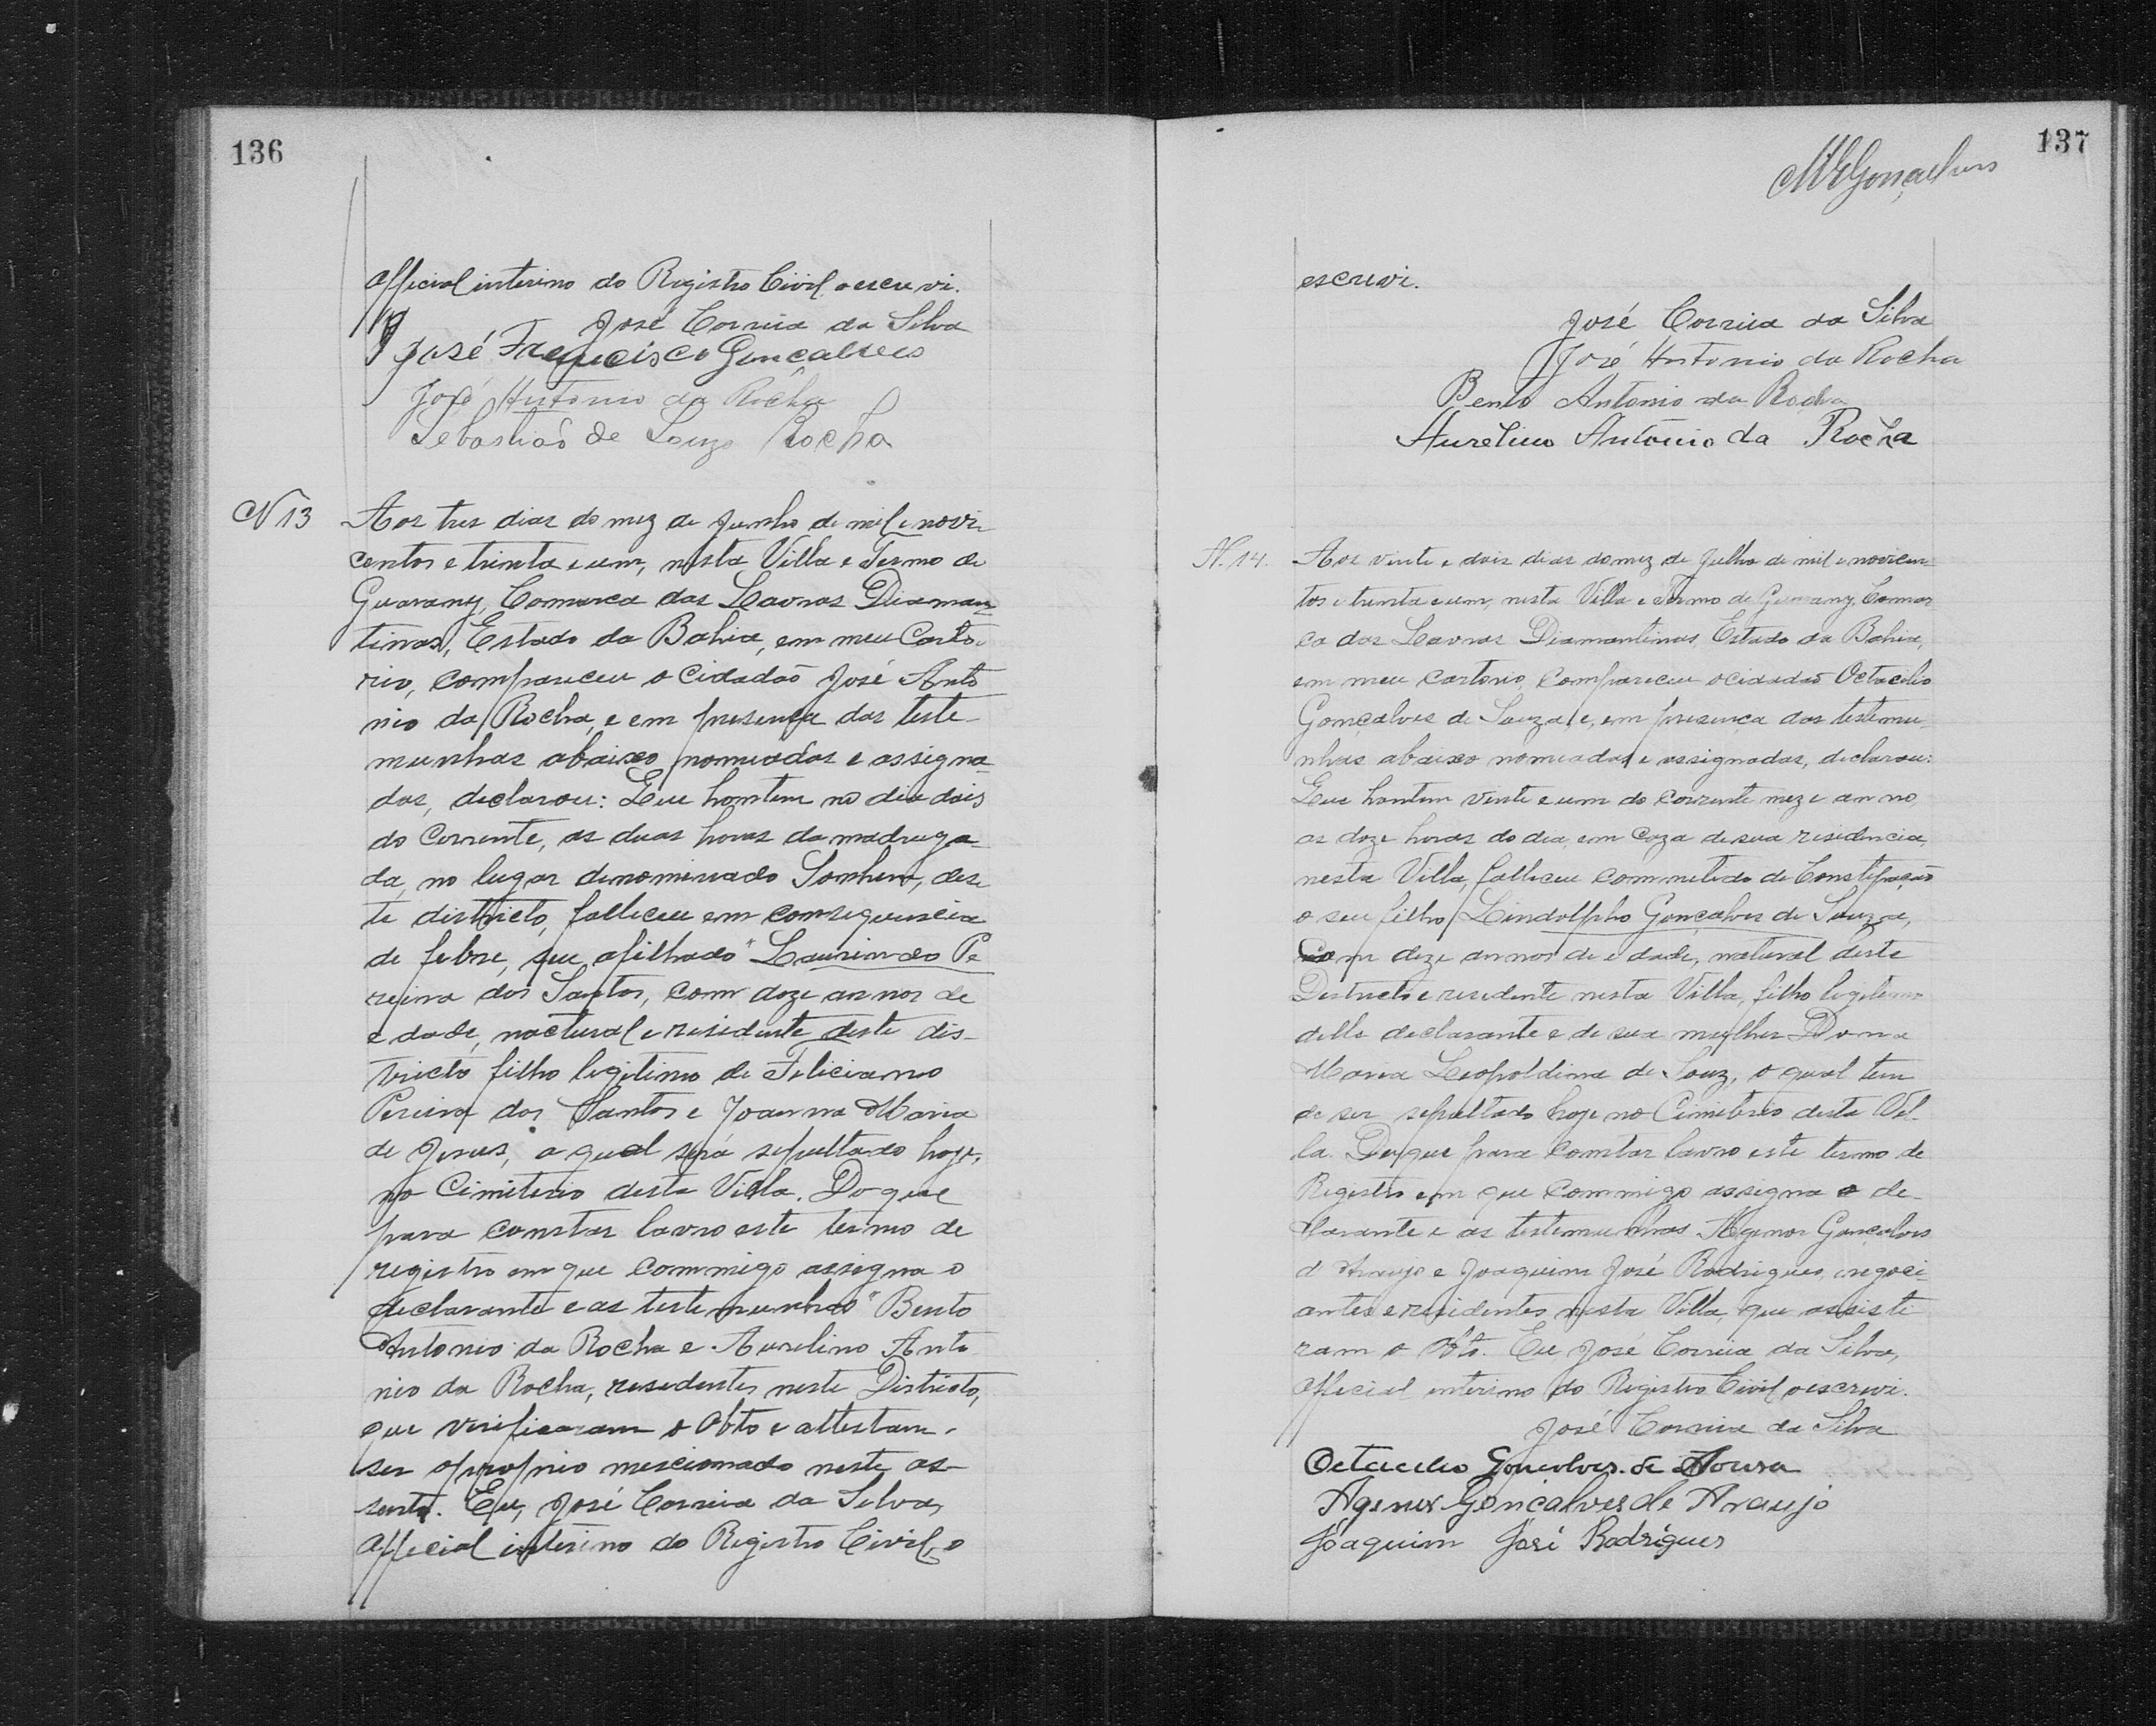 136
Official interino do Registro Civil o escrevi.
José Correia da Silva
José Francisco Gonçalves
José Antonio da Rocha
Sebastião de Souza Rocha
N 13
Aos tres dias do mez de Junho de mil e nove
centos e trinta e um, nesta Villa e Termo de
Guarany, Comarca das Lavras Diaman
tinas, Estado da Bahia, em meu Carto
rio, compareceu o Cidadão José Anto
nio da Rocha, e em presença das teste-
munhas abaixo nomeadas e assigna-
das, declarou: Que hontem no dia dois
do Corrente, as duas horas da madruga-
da, no lugar denominado Sonhem, des
te districto, falleceu em consequencia
de febre, seu afilhado "Laurindo Pe
reira dos Santos, com doze annos de
edade, nactural e residente deste dis-
tricto filho legitimo de Feliciano
Pereira dos Santos e Joanna Maria
de Jesus, o qual será sepultado hoje,
no Cimiterio desta Villa. Do que
para constar lavro este termo de
registro em que commigo assigna o
declarante e as testemunhas "Bento
Antonio da Rocha e Aurelino Anto
nio da Rocha, residentes neste Districto,
que verificaram o Obto e attestam
ser o proprio mencionado neste as-
sento. Eu, José Correia da Silva,
Official interino do Registro Civil, o
137
MRGonçalves
escrevi.
José Correia da Silva
José Antonio da Rocha
Bento Antonio da Rocha
Aurelino Antonio da Rocha
N. 14.
Aos vinte e dois dias do mez de Julho de mil e novicen
tos e trinta e um, nesta Villa e Termo de Guarany, Comar
ca das Lavras Diamantinas, Estado da Bahia,
em meu cartorio, Compareceu o cidadão Octacilio
Gonçalves de Souza, e, em presença das testemu
nhas abaixo nomeadas e assignadas, declarou:
Que hontem vinte e um do corrente mez e anno,
as doze horas do dia, em caza de sua residencia,
nesta Villa, falleceu commetido de Constipação
o seu filho Lindolpho Gonçalves de Souza,
Com doze annos de edade, natural deste
Districto e residente nesta Villa, filho legitimo
delle declarante e de sua mulher Dona
Maria Leopoldina de Souz, o qual tem
de ser sepultado hoje no Cimiterio desta Vil-
la. Do que para constar lavro este termo de
Registro em que commigo assigna o de-
clarante e as testemunhas Agenor Gonçalves
d Araujo e Joaquim José Rodrigues, negoci
antes e residentes nesta Villa, que assisti
ram o Obto. Eu José Correia da Silva,
Official interino do Registro Civil o escrevi.
José Correia da Silva
Octacilio Gonçalves de Sousa
Agenor Gonçalves de Araujo
Joaquim José Rodrigues